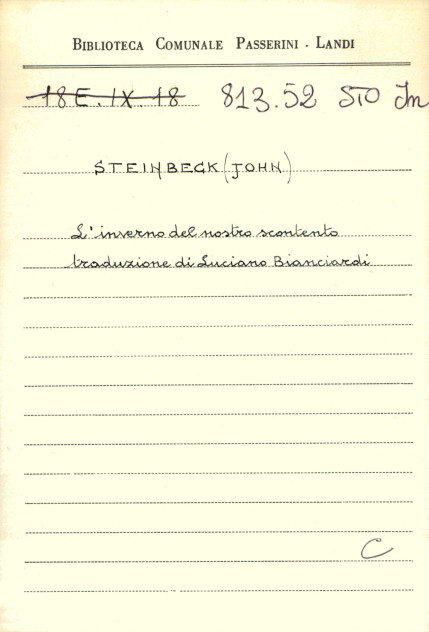 BIBLIOTECA COMUNALE PASSERINI - LANDI
18 E. IX. 18 813.52 STO In
STEINBECK (JOHN)
L'inverno del nostro scontento
traduzione di Luciano Bianciardi
C